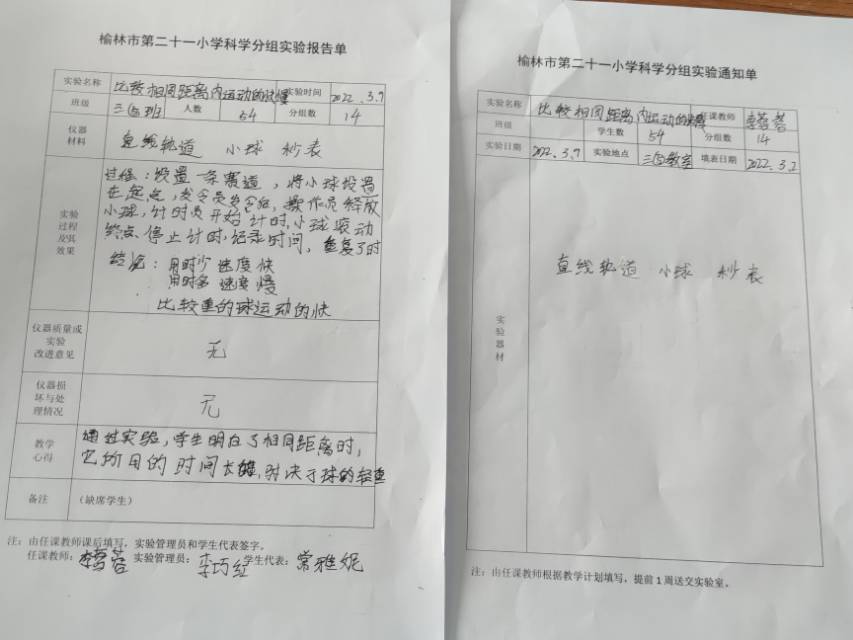 榆林市第二十一小学科学分组实验报告单
实验名称 比较相同距离内运动的快慢 实验时间 2022.3.9
班级 三(5)班 人数 54 分组数 14
仪器材料 直线轨道 小球 秒表
实验过程及其效果
过程:设置一条赛道,将小球设置
在起点,发令员发令后,操作员释放
小球,计时员开始计时,小球滚动
终点、停止计时,记录时间,重复了时
结论:用时少 速度快
用时多 速度慢
比较重的球运动的快
仪器质量或实验改进意见 无
仪器损坏与处理情况 无
教学心得
通过实验,学生明白了相同距离时,
它所用的时间长短,取决于球的轻重
备注 (缺席学生)
注:由任课教师课后填写,实验管理员和学生代表签字。
任课教师: 实验管理员:李巧红 学生代表:常雅妮
榆林市第二十一小学科学分组实验通知单
实验名称 比较相同距离内运动的快慢 任课教师
班级 学生数 54 分组数 14
实验日期 2022.3.9 实验地点 三(5)教室 填表日期 2022.3.2
实验器材
直线轨道 小球 秒表
注:由任课教师根据教学计划填写,提前1周送交实验室。